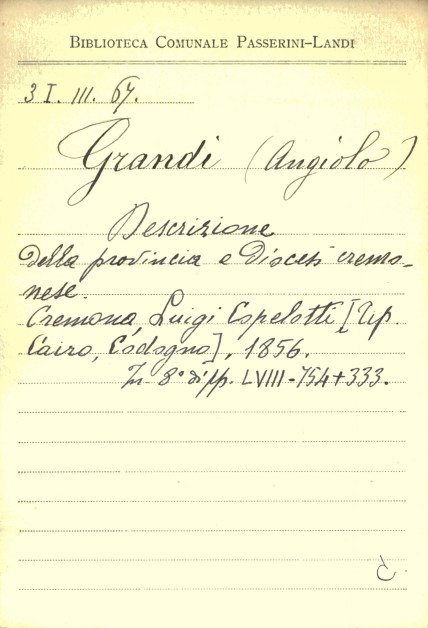 BIBLIOTECA COMUNALE PASSERINI-LANDI
3 I. III. 67.
Grandi (Angiolo)
Descrizione
della provincia e Diocesi cremo-
nese.
Cremona, Luigi Copelotti [Tip
Cairo, Codogno], 1856.
In 8° di pp. LVIII-754+333.
C